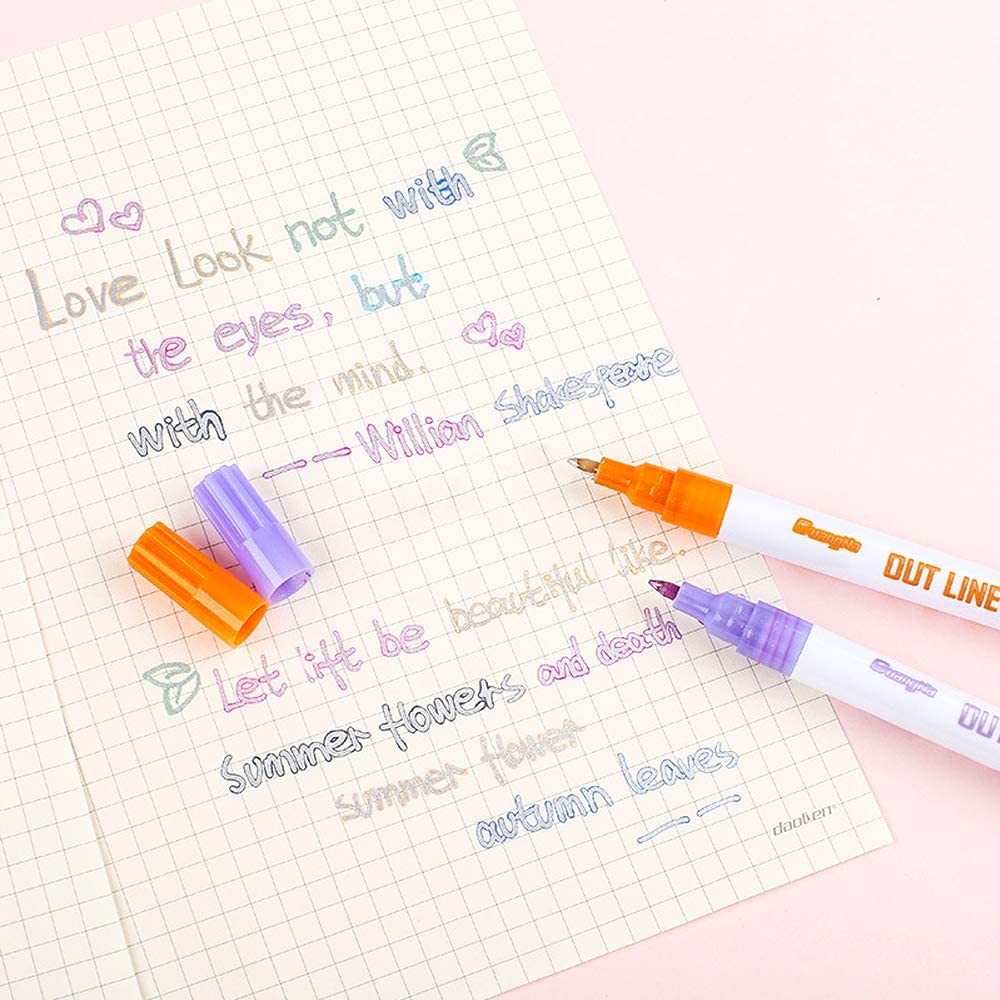 Love Look not with
the eyes, but
with the mind.
—— Willian Shakespeare
Let lift be beautiful like.
summer flowers and death
summer flower
autumn leaves
——
daoLen®
GuangNa OUT LINE
GuangNa OUT